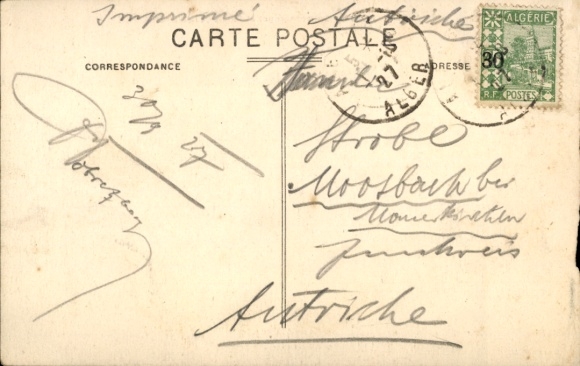 Imprimé
Autriche
CARTE POSTALE
CORRESPONDANCE
ADRESSE
ALGÉRIE
30
R.F. POSTES
27
ALGER
30/9 27
Strobl
Moosbach bei
Mauerkirchen
Innkreis
Autriche